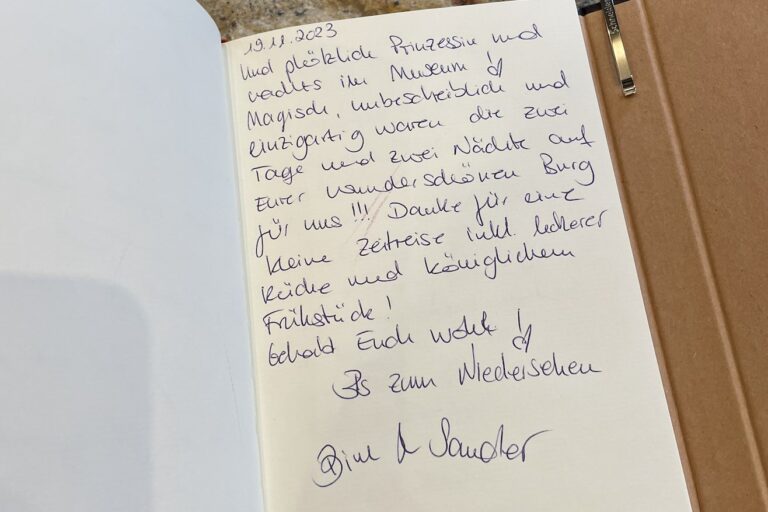 19.11.2023
Und plötzlich Prinzessin und
nachts im Museum!
Magisch, unbeschreiblich und
einzigartig waren die zwei
Tage und zwei Nächte auf
Eurer wunderschönen Burg
für uns!!! Danke für eine
kleine Zeitreise inkl. leckerer
Küche und königlichem
Frühstück!
Gehabt Euch wohl!
Bis zum Wiedersehen